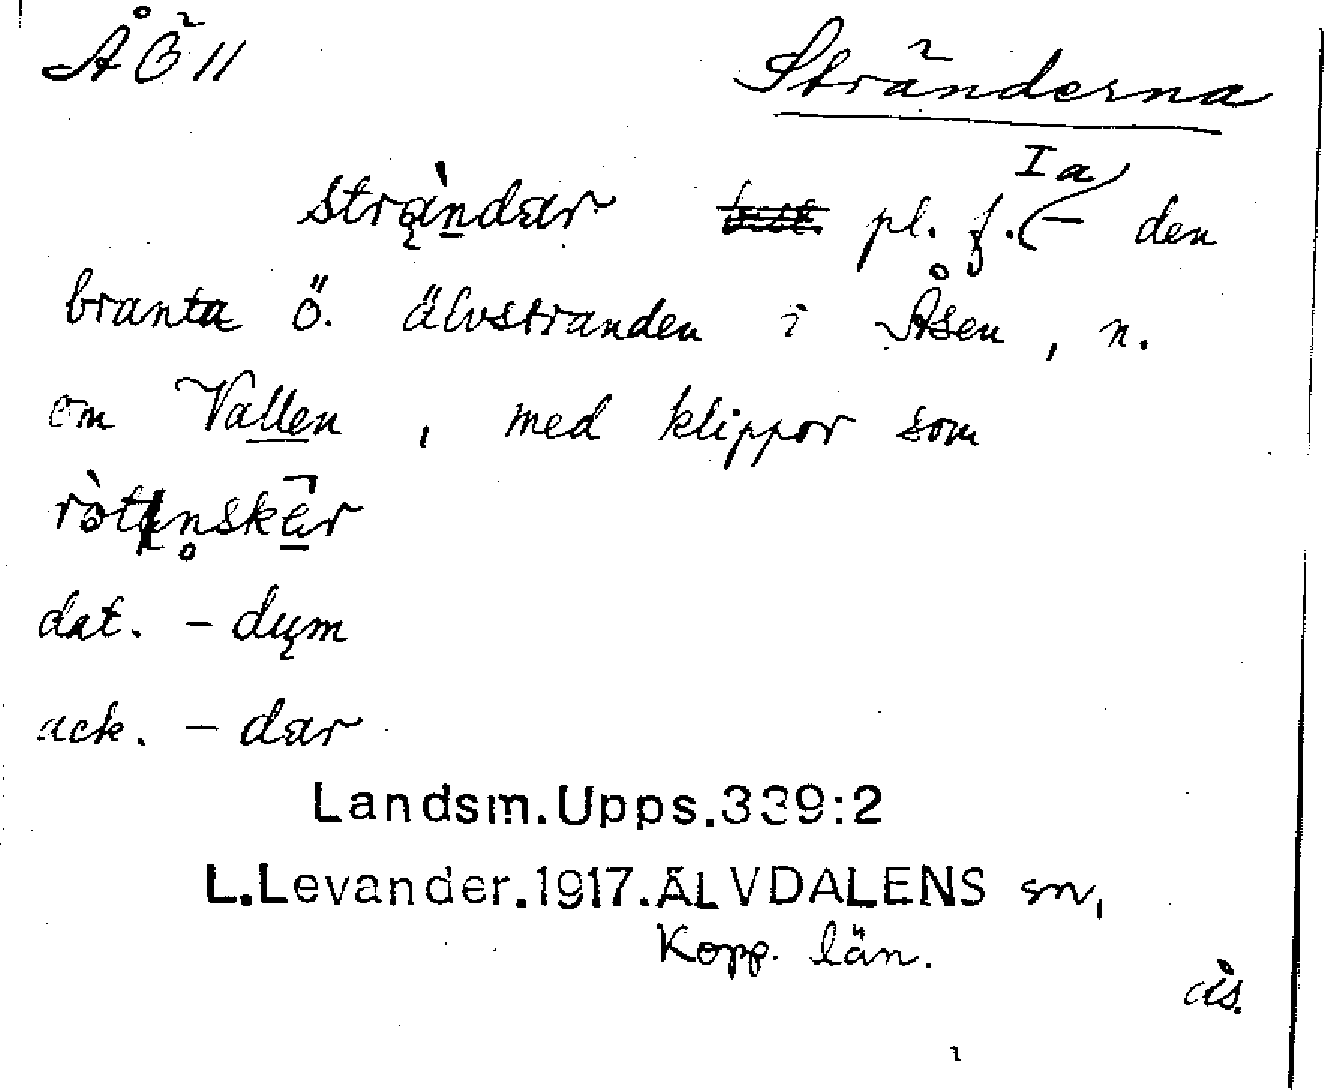 ÅÖ 11 Stränderna
Ia
strą̀ndar pl. f. (– den
branta ö. älvstranden i Åsen, n.
om Vallen, med klippor som
dat. – dųm
ack. – dar
Landsm.Upps.339:2
L.Levander.1917.ÄLVDALENS sn,
Kopp. län.